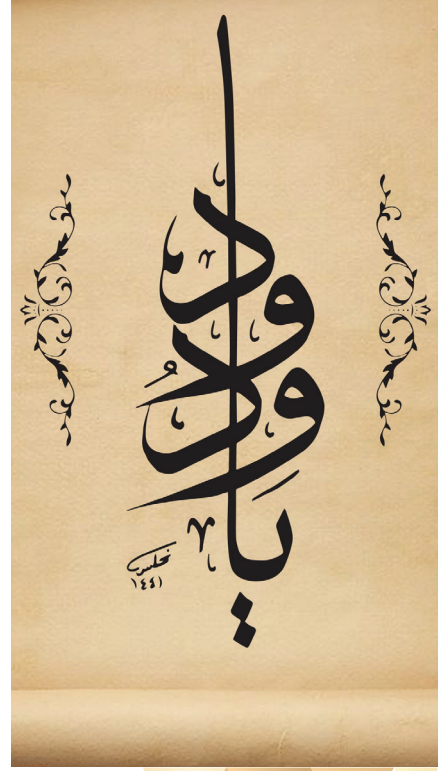 يا ودُود
١٤٤١